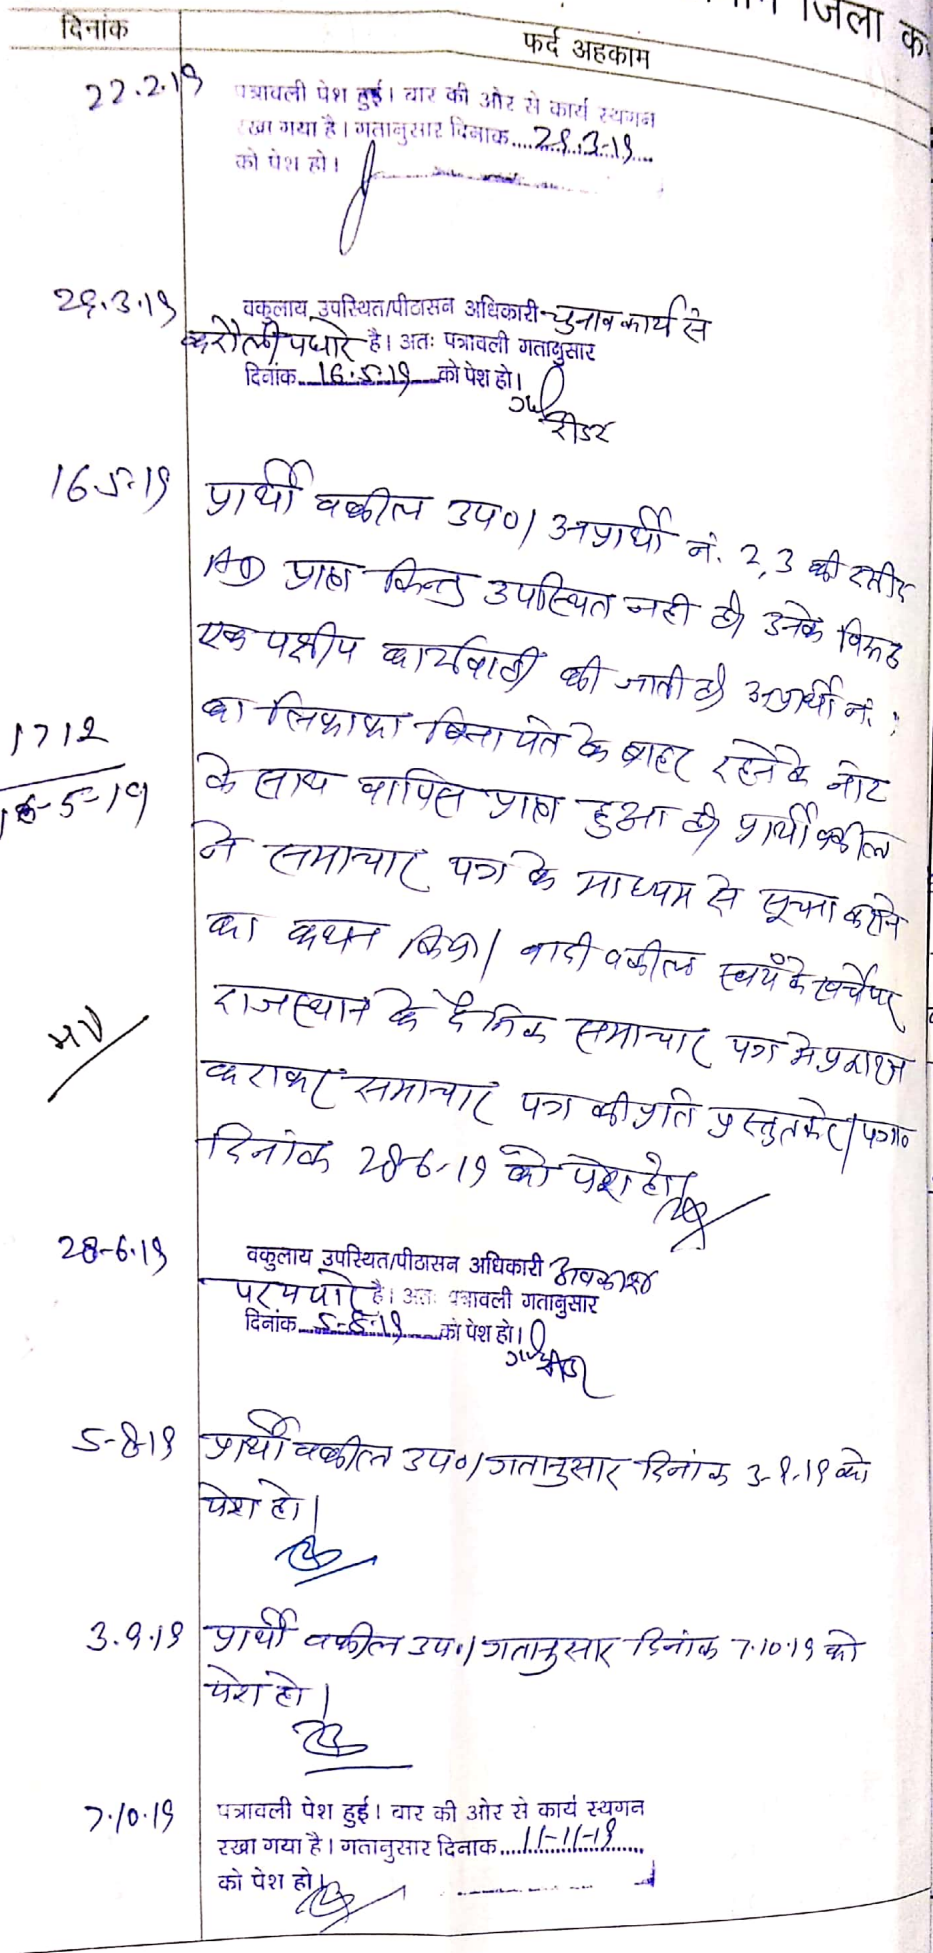 जिला क
दिनांक
फर्द अहकाम
22.2.19
पत्रावली पेश हुई। बार की ओर से कार्य स्थगन
रखा गया है। गतानुसार दिनाक....29.3.19...
को पेश हो।
29.3.19
वकुलाय उपस्थित/पीठासन अधिकारी चुनाव कार्य से
करौली पधारे है। अतः पत्रावली गतानुसार
दिनांक 16.5.19 को पेश हो।
रीडर
16.5.19
प्रार्थी वकील उप०। अप्रार्थी नं. 2,3 की रसीद
AD प्राप्त किन्तु उपस्थित नही है। उनके विरूद्ध
एक पक्षीय कार्यवाही की जाती है। अप्रार्थी नं.
का लिफाफा बिना पते के बाहर रहने के नोट
1712
16-5-19
के साथ वापिस प्राप्त हुआ है। प्रार्थी वकील
ने समाचार पत्र के माध्यम से सूचना कराने
का कथन किया। वादी वकील स्वयं के खर्चे पर
राजस्थान के दैनिक समाचार पत्र मे
कराकर समाचार पत्र की प्रति प्रस्तुत करे। पत्रा०
दिनांक 28-6-19 को पेश हो।
28-6-19
वकुलाय उपस्थित/पीठासन अधिकारी अवकाश
पर पधारे है। अतः पत्रावली गतानुसार
दिनांक 5-8-19 को पेश हो।
रीडर
5-8-19
प्रार्थी वकील उप०। गतानुसार दिनांक 3-9-19 को
पेश हो।
3.9.19
प्रार्थी वकील उप०। गतानुसार दिनांक 7.10.19 को
पेश हो।
7.10.19
पत्रावली पेश हुई। बार की ओर से कार्य स्थगन
रखा गया है। गतानुसार दिनाक....11-11-19......
को पेश हो।